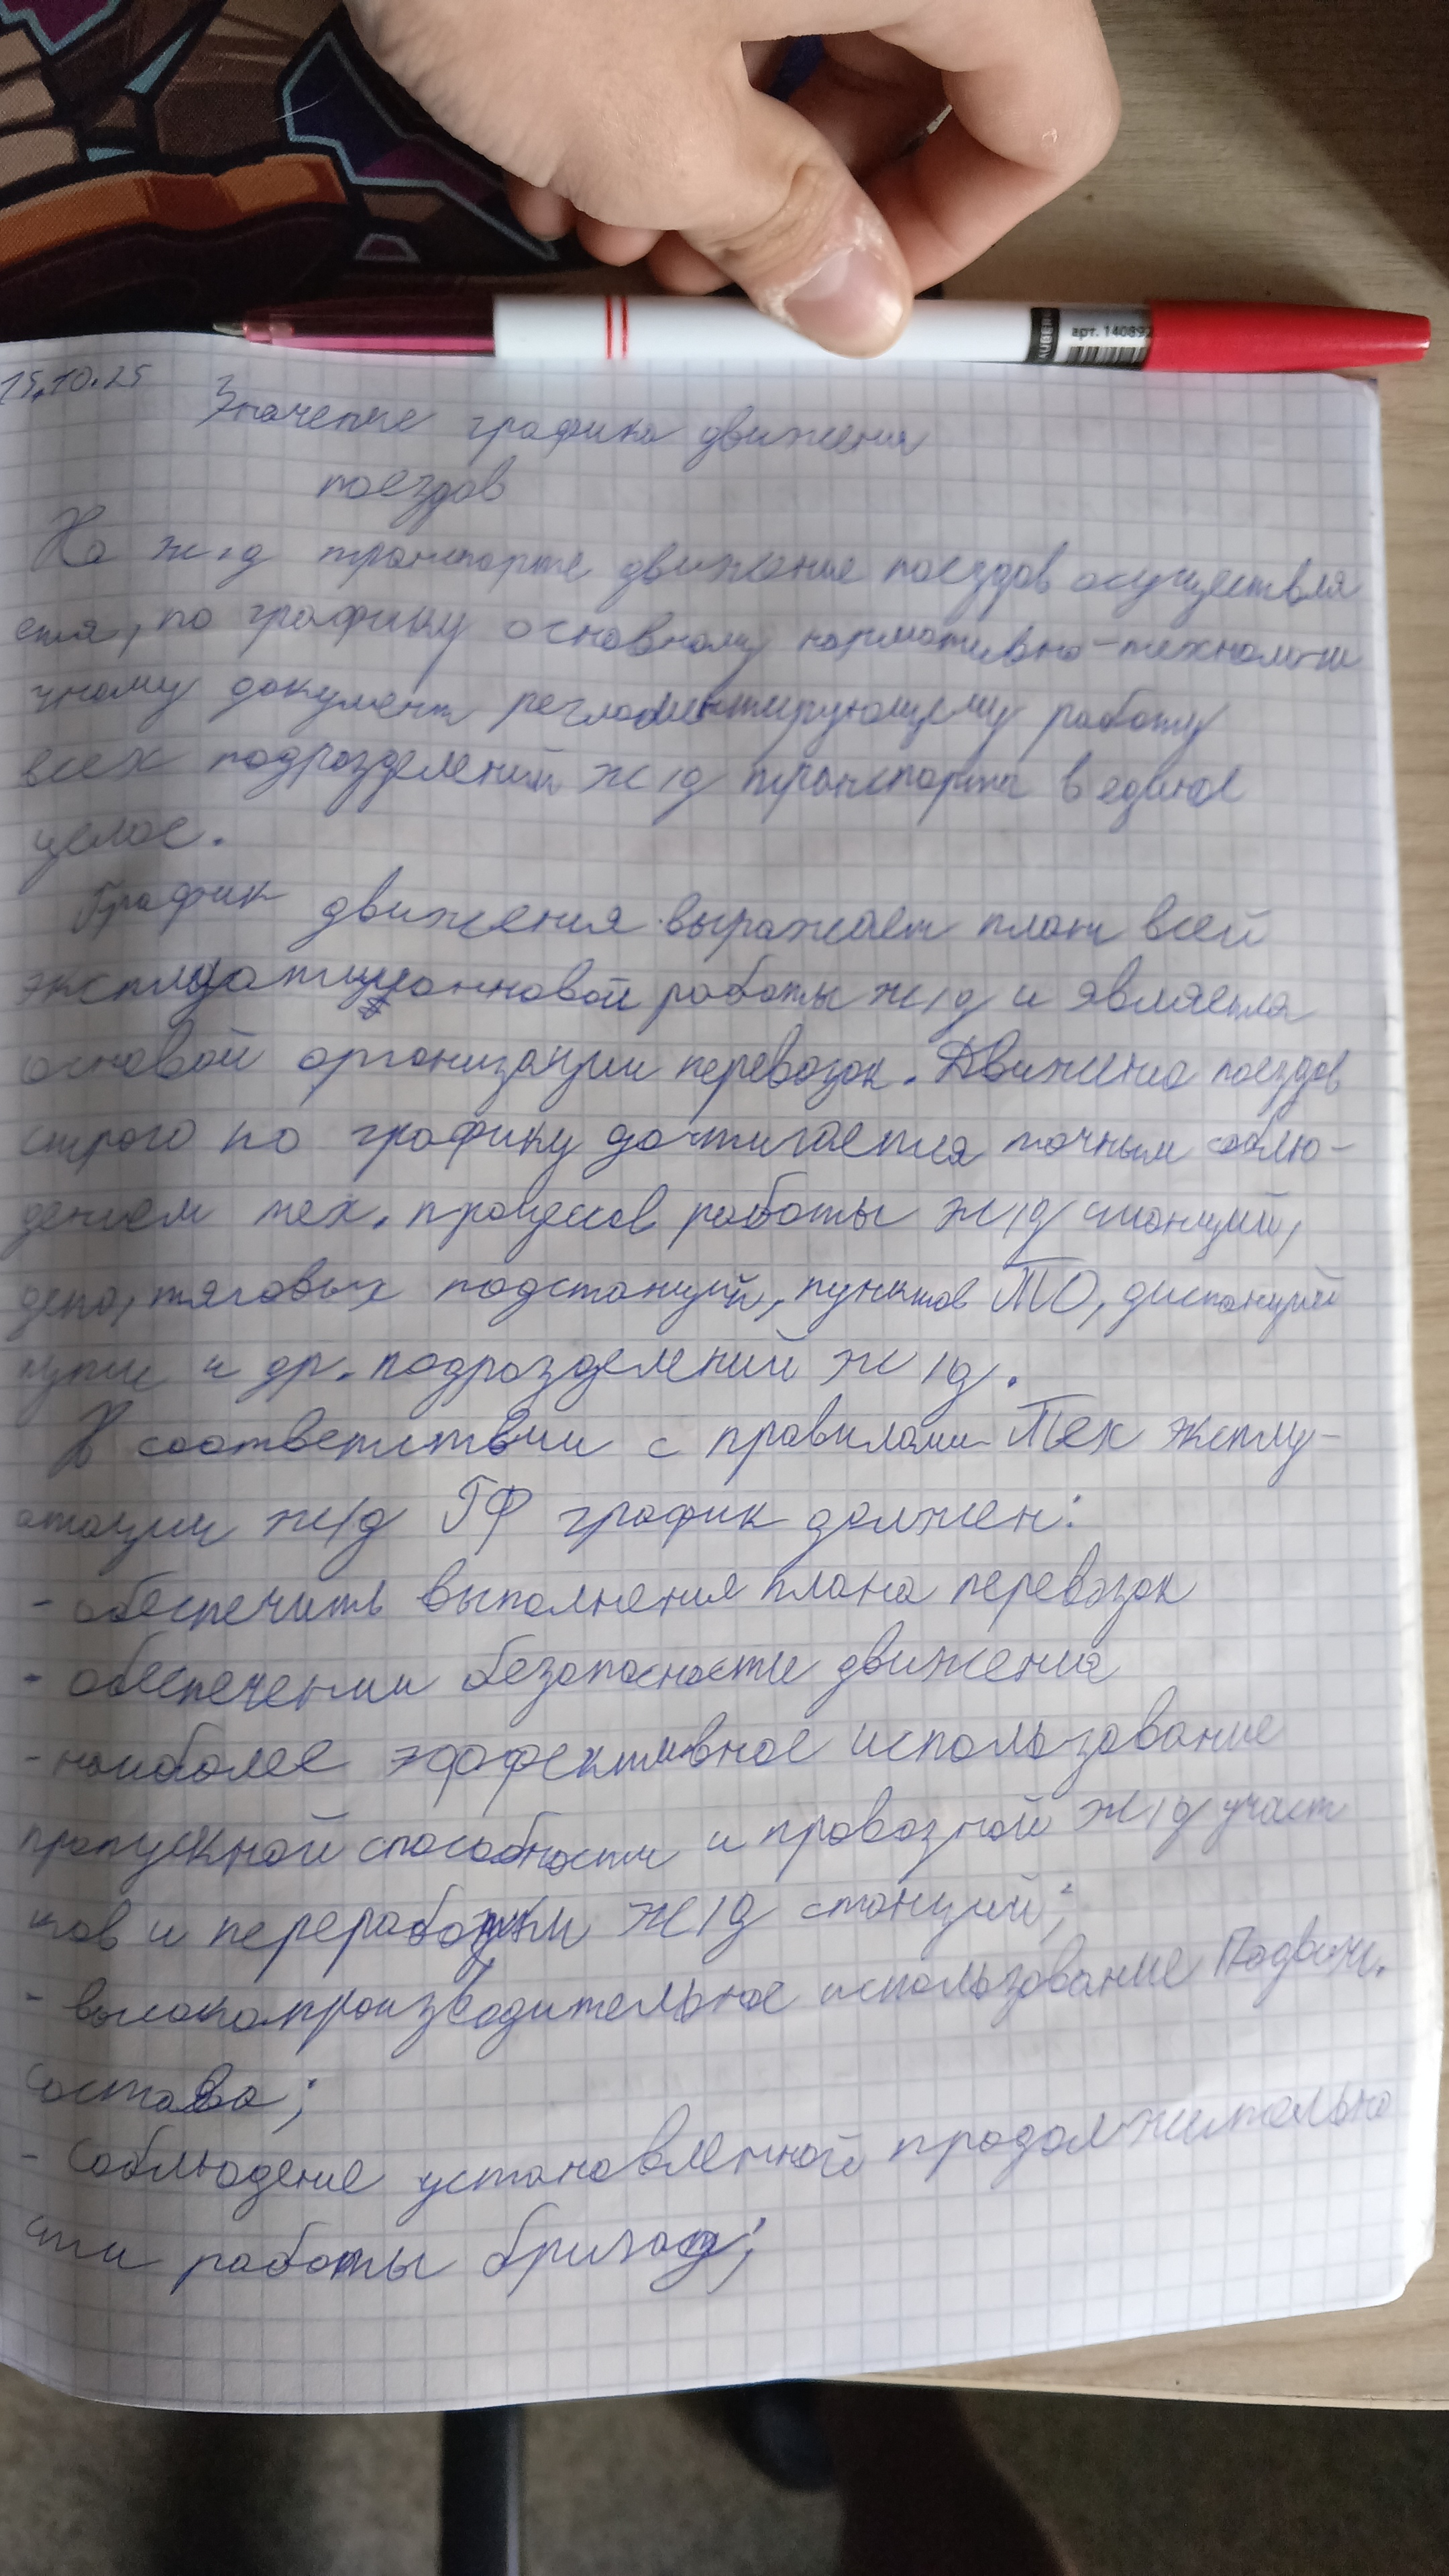 арт. 140892
15.10.25
Значение графика движения
поездов
На ж/д транспорте движение поездов осуществля
ется, по графику основному нормативно-технологи
чному документ регламентирующему работу
всех подразделений ж/д транспорта в единое
целое.
График движения выражает план всей
эксплуатационновой работы ж/д и является
основой организации перевозок. Движение поездов
строго по графику достигается точным соблю-
дением тех. процессов работы ж/д станций,
депо, тяговых подстанций, пунктов ТО, дистанций
пути и др. подразделений ж/д.
В соответствии с правилами Тех эксплу-
атации ж/д РФ график должен:
- обеспечить выполнения плана перевозок
- обеспечении безопасности движения
- наиболее эффективное использование
пропускной способности и провозной ж/д участ
ков и переработки ж/д станций;
- высокопроизводительное использование Подвиж.
состава;
- соблюдение установленной продолжительно
сти работы бригад;